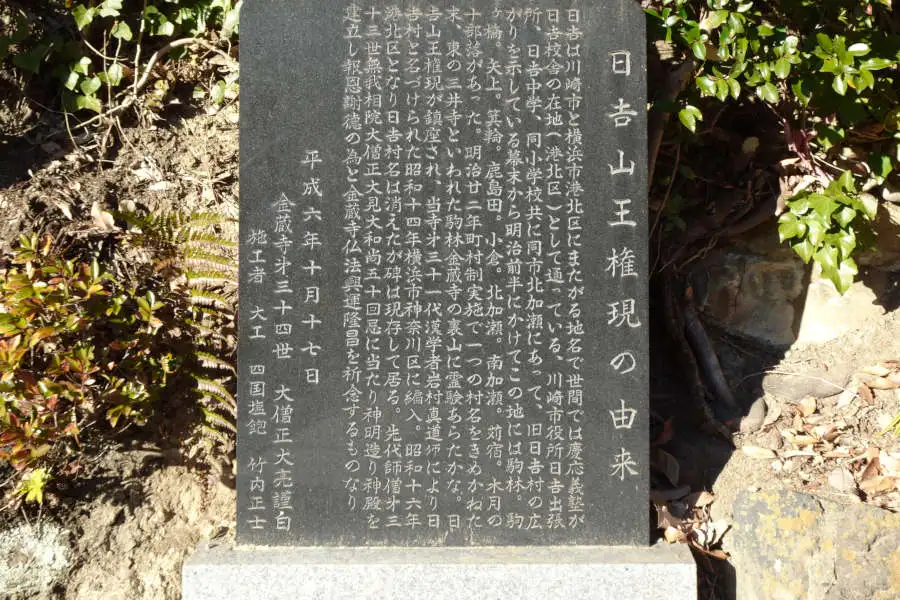 日吉山王権現の由来
日吉は川崎市と横浜市港北区にまたがる地名で世間では慶応義塾が
日吉校舎の在地(港北区)として通っている。川崎市役所日吉出張
所、日吉中学、同小学校共に同市北加瀬にあって、旧日吉村の広
がりを示している幕末から明治前半にかけてこの地には駒林。駒
ヶ橋。矢上。箕輪。鹿島田。小倉。北加瀬。南加瀬。苅宿。木月の
十部落があった。明治廿二年町村制実施で一つの村名をきめかねた
末、東の三井寺といわれた駒林金蔵寺の裏山に霊験あらたかな。日
吉山王権現が鎮座され、当寺才三十一代漢学者岩村真道師により日
吉村と名づけられた昭和十四年横浜市神奈川区に編入。昭和十六年
港北区となり日吉村名は消えたが碑は現存して居る。先代師僧才三
十三世無我相院大僧正大見大和尚五十回忌に当たり神明造り神殿を
建立し報恩謝徳の為と金蔵寺仏法興運隆昌を祈念するものなり
平成六年十月十七日
金蔵寺才三十四世 大僧正大亮謹白
施工者 大工 四国塩飽 竹内正士